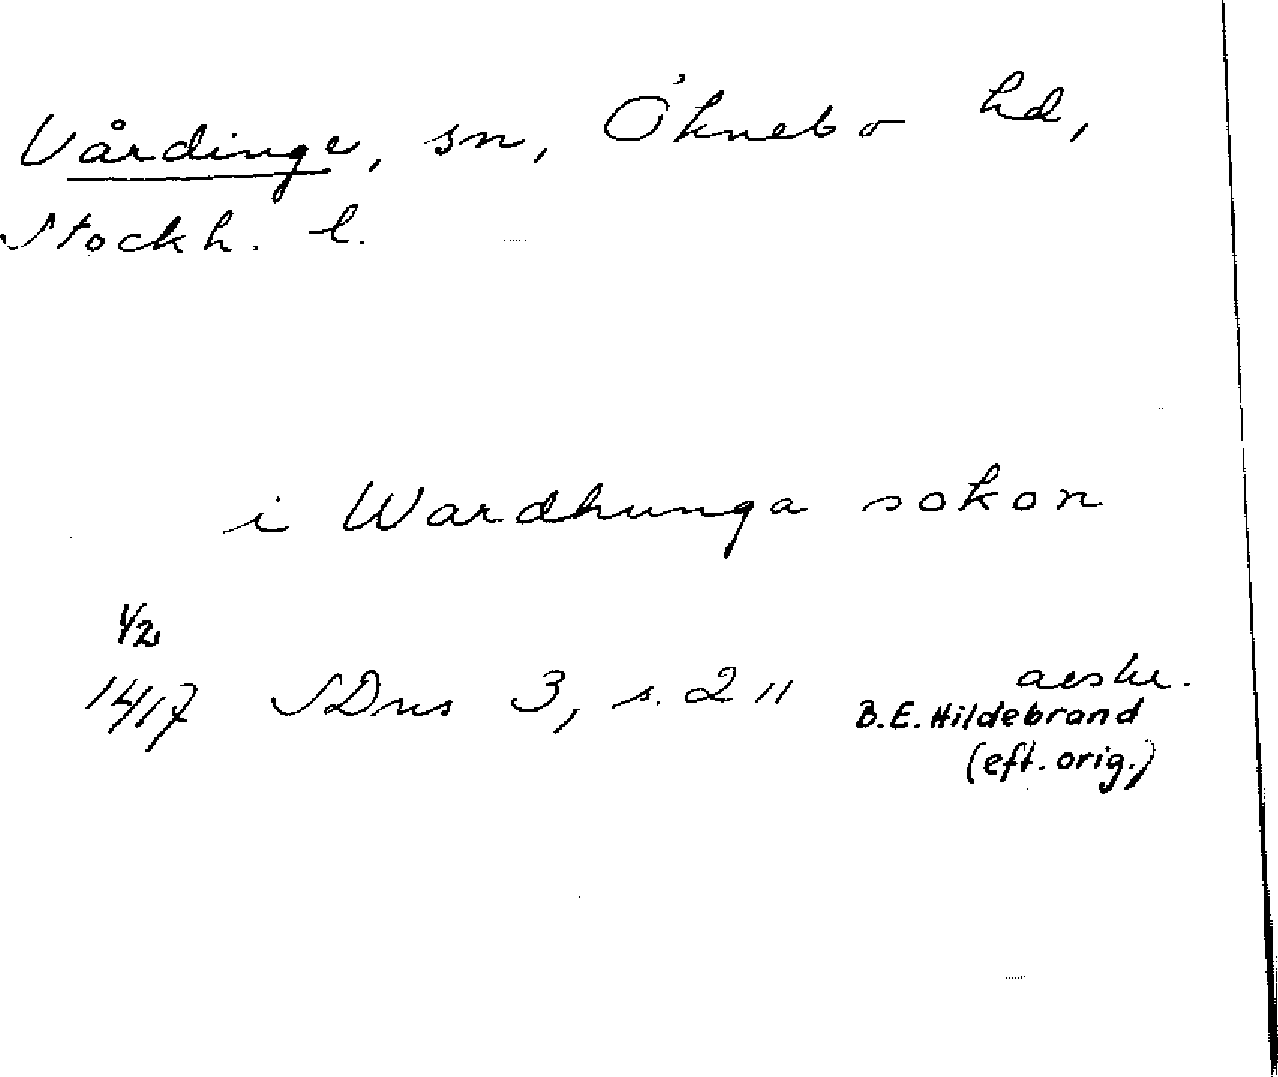 Vårdinge, sn, Öknebo hd,
Stockh. l.
i Wardhunga sokon
1/2
1417 SDns 3, s. 211 avskr.
B.E. Hildebrand
(eft. orig.)